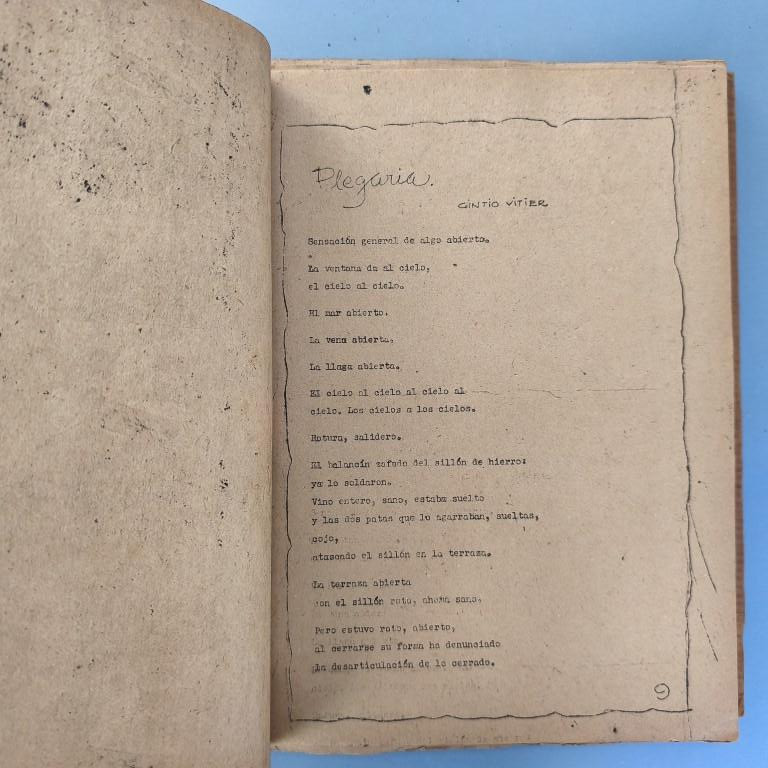 Plegaria.
CINTIO VITIER
Sensación general de algo abierto.
La ventana da al cielo,
el cielo al cielo.
El mar abierto.
La vena abierta.
La llaga abierta.
El cielo al cielo al cielo al
cielo. Los cielos a los cielos.
Rotura, salidero.
El balancín zafado del sillón de hierro:
ya lo soldaron.
Vino entero, sano, estaba suelto
y las dos patas que lo agarraban, sueltas,
cojo,
atascado el sillón en la terraza.
La terraza abierta
con el sillón roto, ahora sano.
Pero estuvo roto, abierto,
al cerrarse su forma ha denunciado
la desarticulación de lo cerrado.
9